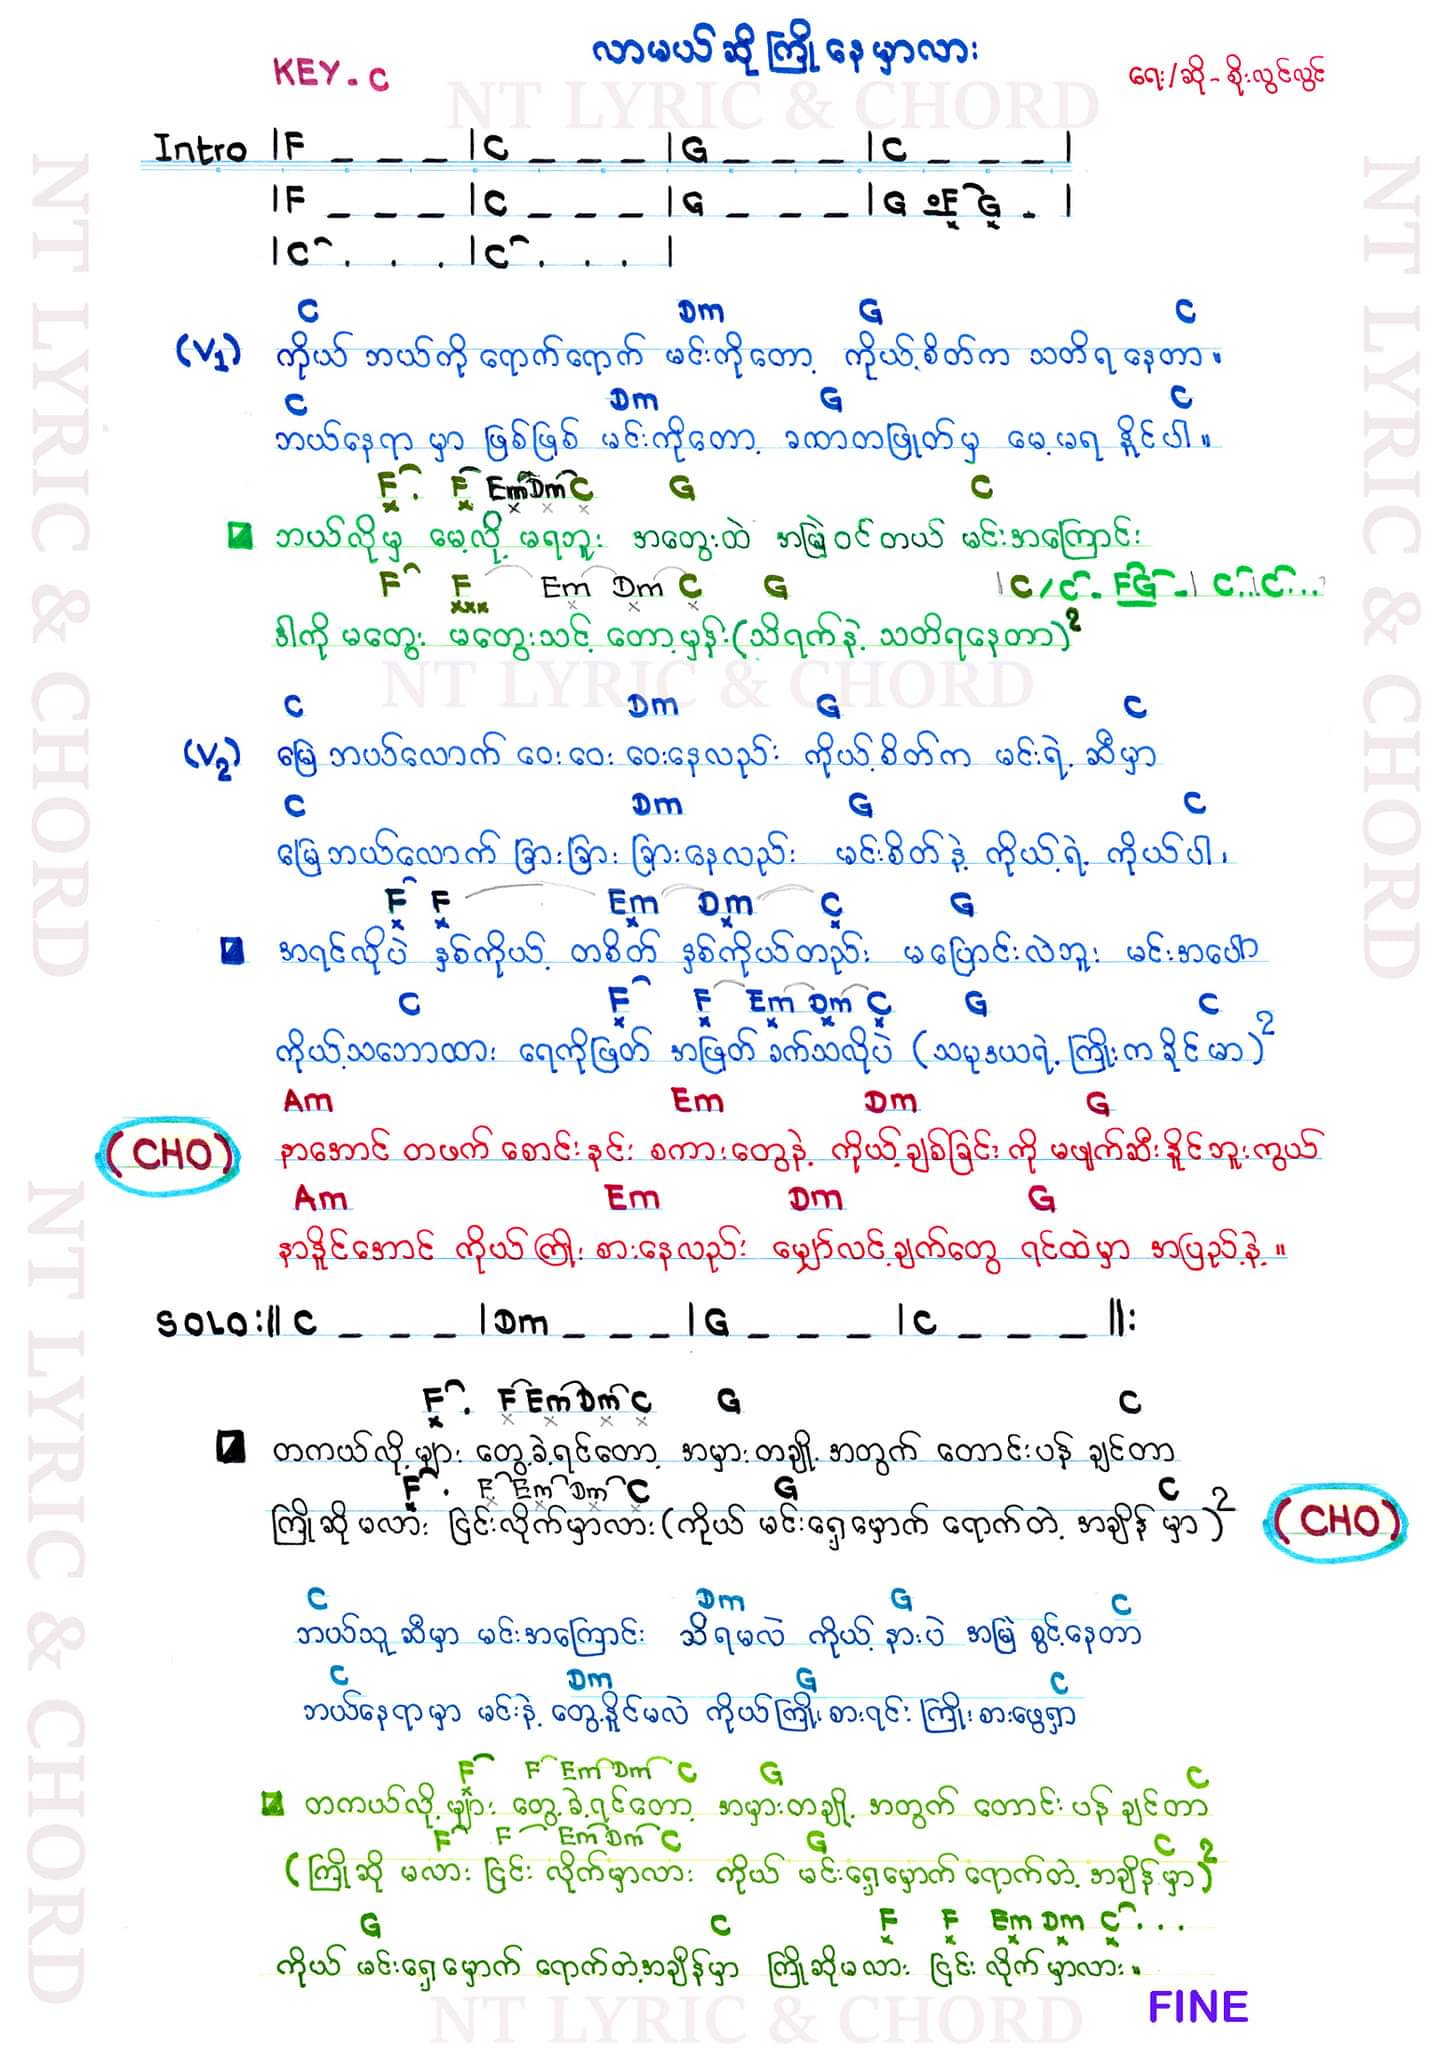 လာမယ်ဆိုကြိုနေမှာလား
KEY - C
ရေး/ဆို - စိုးလွင်လွင်
NT LYRIC & CHORD
Intro |F _ _ _ |C _ _ _ |G _ _ _ |C _ _ _ |
|F _ _ _ |C _ _ _ |G _ _ _ |G oF G . |
|C . . . |C . . . |
C Dm G C
(V1) ကိုယ် ဘယ်ကို ရောက်ရောက် မင်းကိုတော့ ကိုယ့်စိတ်က သတိရ နေတာ။
C Dm G C
ဘယ်နေရာ မှာ ဖြစ်ဖြစ် မင်းကိုတော့ ခဏတဖြုတ်မှ မေ့မရ နိုင်ပါ။
F . F Em Dm C G C
ဘယ်လိုမှ မေ့လို့ မရဘူး အတွေးထဲ အမြဲဝင်တယ် မင်းအကြောင်း
F F Em Dm C G |C / C - FG -| C . . |C . . .
ဒါကို မတွေး မတွေးသင့် တော့မှန်း(သိရက်နဲ့ သတိရနေတာ)2
NT LYRIC & CHORD
C Dm G C
(V2) မြေဘယ်လောက် ဝေးဝေး ဝေးနေလည်း ကိုယ့်စိတ်က မင်းရဲ့ ဆီမှာ
C Dm G C
မြေဘယ်လောက် ခြားခြား ခြားနေလည်း မင်းစိတ်နဲ့ ကိုယ့်ရဲ့ ကိုယ်ပါ၊
F F Em Dm C G
အရင်လိုပဲ နှစ်ကိုယ့် တစိတ် နှစ်ကိုယ်တည်း မပြောင်းလဲဘူး မင်းအပေါ်
C F F Em Dm C G C
ကိုယ့်သဘောထား ရေကိုဖြတ် အဖြတ် ခက်သလိုပဲ (သမုဒယရဲ့ ကြိုးက ခိုင်မာ)2
Am Em Dm G
(CHO) နာအောင် တဖက် စောင်းနင်း စကားတွေနဲ့ ကိုယ့်ချစ်ခြင်း ကို မဖျက်ဆီးနိုင်ဘူးကွယ်
Am Em Dm G
နာနိုင်အောင် ကိုယ်ကြိုး စားနေလည်း မျှော်လင့်ချက်တွေ ရင်ထဲမှာ အပြည့်နဲ့။
SOLO:|| C _ _ _ |Dm _ _ _ |G _ _ _ |C _ _ _ ||:
F . F Em Dm C G C
တကယ်လို့များ တွေ့ခဲ့ရင်တော့ အမှားတချို့ အတွက် တောင်းပန် ချင်တာ
F . F Em Dm C G C
ကြိုဆိုမလား ငြင်းလိုက်မှာလား(ကိုယ် မင်းရှေ့မှောက် ရောက်တဲ့ အချိန် မှာ)2 (CHO)
C Dm G C
ဘယ်သူ့ဆီမှာ မင်းအကြောင်း သိရမလဲ ကိုယ့် နားပဲ အမြဲ စွင့်နေတာ
C Dm G C
ဘယ်နေရာမှာ မင်းနဲ့ တွေ့နိုင်မလဲ ကိုယ်ကြိုးစားရင်း ကြိုးစားဖွေရှာ
F F Em Dm C G C
တကယ်လို့များ တွေ့ခဲ့ရင်တော့ အမှားတချို့ အတွက် တောင်းပန် ချင်တာ
F F Em Dm C G C
(ကြိုဆို မလား ငြင်း လိုက်မှာလား ကိုယ် မင်းရှေ့မှောက် ရောက်တဲ့ အချိန် မှာ)2
G C F F Em Dm C . . .
ကိုယ် မင်းရှေ့မှောက် ရောက်တဲ့အချိန်မှာ ကြိုဆိုမလား ငြင်း လိုက် မှာလား။
FINE
NT LYRIC & CHORD
NT LYRIC & CHORD
NT LYRIC & CHORD
NT LYRIC & CHORD